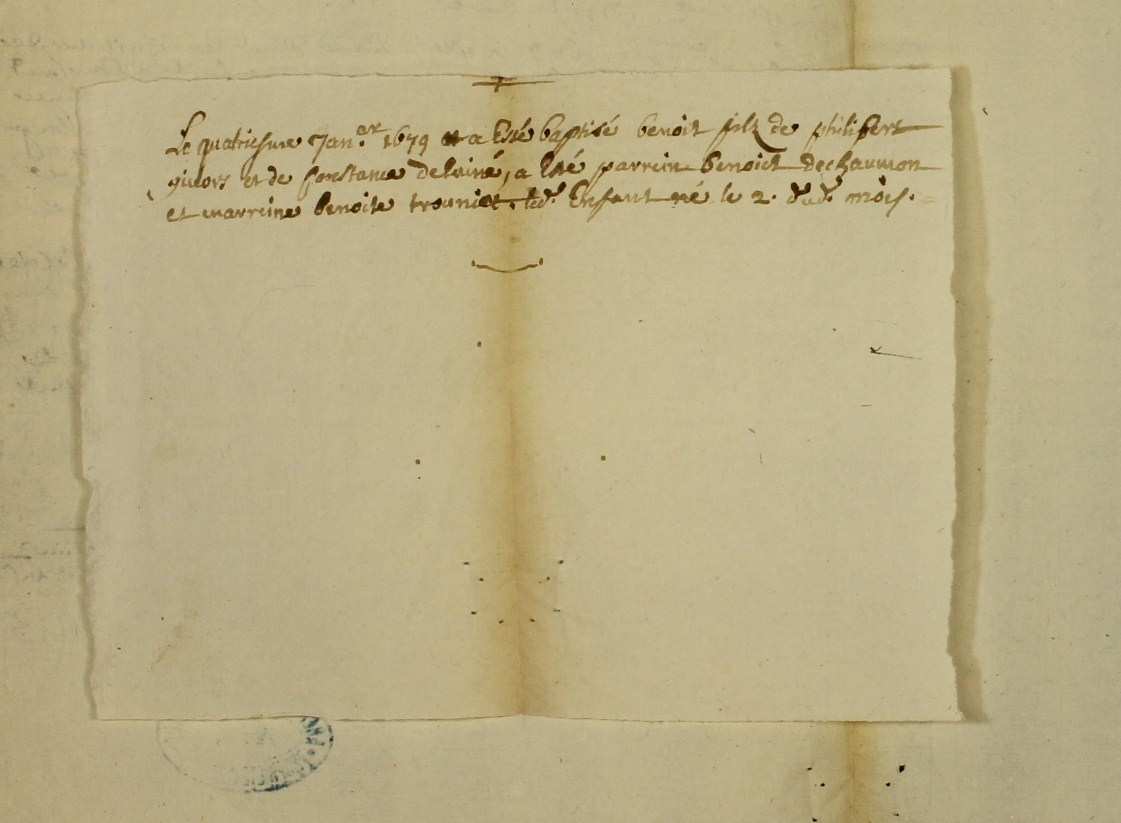 Le quatriesme Jan.er 1679 a Esté baptisé benoit filz de philibert
givors et de constance delaine, a Esté parrein benoict dechaumon
et marreine benoite led. Enfant né le 2. dud. mois.